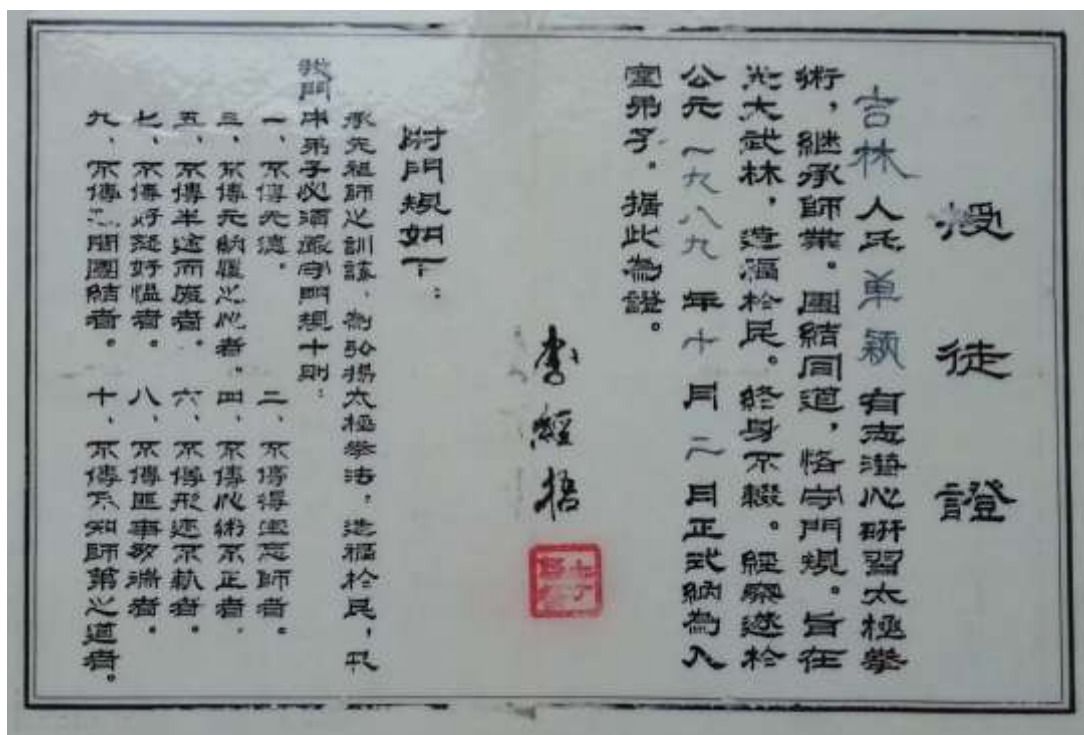 授徒證
吉林人氏单颖有志潛心研習太極拳
術，継承師業。團結同道，恪守門規。旨在
光大武林，造福於民。終身不輟。經察遂於
公元一九八九年十月二日正式納為入
室弟子。據此為證。
李經梧
附門規如下：
承先祖師之訓誡，為弘揚太極拳法，造福於民，凡
我門中弟子必須嚴守門規十則：
一、不傳无德。
二、不傳得藝忘師者。
三、不傳无納履之心者。
四、不傳心術不正者。
五、不傳半途而廢者。
六、不傳形迹不執者。
七、不傳好疑好愠者。
八、不傳匪事端者。
九、不傳團結者。
十、不傳不知師弟之道者。